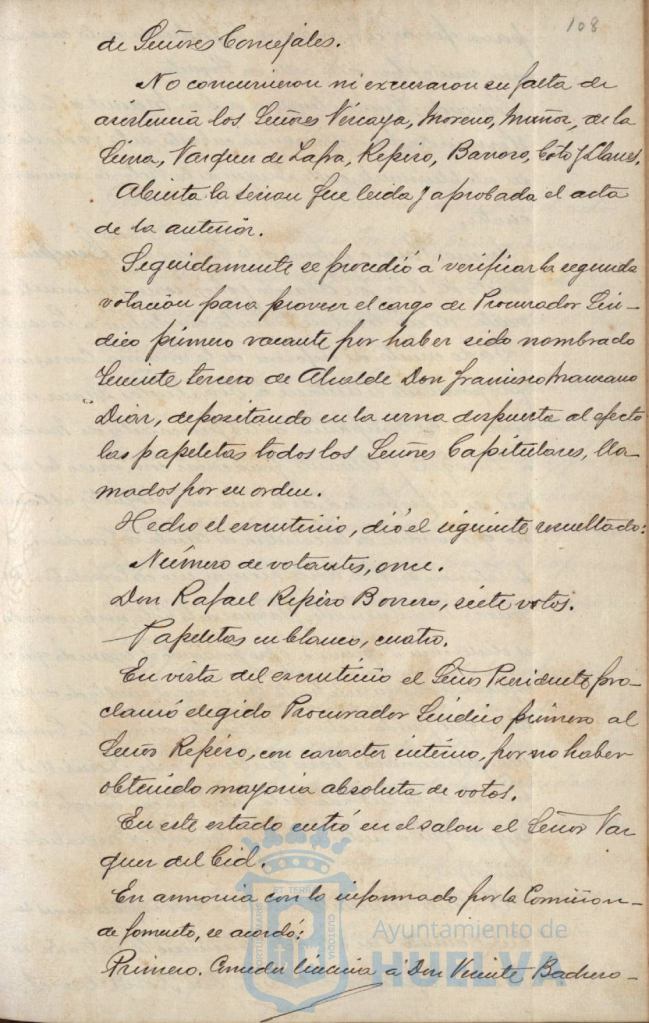 108
de Señores Concejales.
No concurrieron ni excusaron su falta de
asistencia los Señores Vizcaya, Moreno, Muñoz, de la
Sierra, Vazquez de Zafra, Repiso, Barroso, Coto y Llanes.
Abierta la sesion fue leida y aprobada el acta
de la anterior.
Seguidamente se procedió á verificar la segunda
votación para proveer el cargo de Procurador Sín-
dico primero vacante por haber sido nombrado
Teniente tercero de Alcalde Don Francisco Manzano
Diaz, depositando en la urna dispuesta al efecto
las papeletas todos los Señores Capitulares, lla-
mados por su orden.
Hecho el escrutinio, dió el siguiente resultado:
Número de votantes, once.
Don Rafael Repiso Borrero, siete votos.
Papeletas en blanco, cuatro.
En vista del escrutinio el Señor Presidente pro-
clamó elegido Procurador Síndico primero al
Señor Repiso, con caracter interino, por no haber
obtenido mayoria absoluta de votos.
En este estado entró en el salon el Señor Vaz
quez del Cid.
En armonia con lo informado por la Comision
de fomento, se acordó:
Primero. Conceder licencia á Don Vicente
Ayuntamiento de
HUELVA